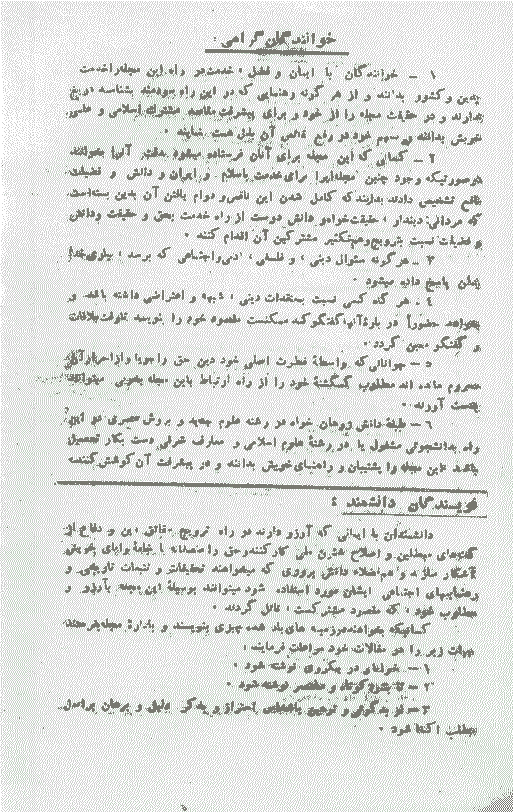 خوانندگان گرامی :
۱ – خوانندگان با ایمان و فضل ، خدمت در راه این مجله را خدمت
بدین و کشور بدانند و از هر گونه رهنمایی که در این راه سودمند بشناسند دریغ
ندارند و در حقیقت مجله را از خود و برای پیشرفت مقاصد مشترک اسلامی و علمی
خویش بدانند و سهم خود در رفع نقائص آن بذل همت نمایند .
۲ – کسانی که این مجله برای آنان فرستاده میشود بدقت آنرا بخوانند
در صورتیکه وجود چنین مجله‌ای را برای خدمت باسلام و ایران و دانش و فضیلت
نافع تشخیص دادند بدانند که کامل شدن این ناقص و دوام یافتن آن بدین بسته است
که مردانی دیندار ، حقیقت خواه و دانش دوست از راه خدمت بحق و حقیقت و دانش
و فضیلت نسبت بترویج و تکثیر مشترکین آن اقدام کنند .
۳ – هر گونه سئوال دینی ، و فلسفی ، ادبی و اجتماعی که برسد ، بیاری خدا
بدان پاسخ داده میشود .
۴ – هر گاه کسی نسبت بمعتقدات دینی ، شبهه و اعتراضی داشته باشد و
بخواهد حضوراً در باره آنها گفتگو کند ممکنست مقصود خود را بنویسد تا وقت ملاقات
و گفتگو معین گردد .
۵ – جوانانی که بواسطه فطرت اصلی خود دین حق را جویا و از اسرار آن
محروم مانده اند مطلوب گمگشته خود را از راه ارتباط باین مجله بخوبی میتوانند
بدست آورند .
۶ – طبقه دانش پژوهان خواه در رشته علوم جدید و بروش عصری در این
راه بدانشجوئی مشغول یا در رشته علوم اسلامی و معارف شرقی دست بکار تحصیل
باشند ، این مجله را پشتیبان و راهنمای خویش بدانند و در پیشرفت آن کوشش کنند
نویسندگان دانشمند :
دانشمندان با ایمانی که آرزو دارند در راه ترویج حقائق دین و دفاع از
گفته‌های مبطلین و اصلاح شئون ملی کار کنند و حق را منصفانه با خامه توانای خویش
آشکار سازند و هم فضلاء دانش پروری که میخواهند تحقیقات و تتبعات تاریخی و
راهنماییهای اجتماعی ایشان مورد استفاده شود میتوانند بوسیله این مجله بآرزو و
مطلوب خود ، که مقصود مشترکست ، نائل گردند .
کسانیکه بخواهند در زمینه های یاد شده چیزی بنویسند و باداره مجله بفرستند
جهات زیر را در مقالات خود مراعات فرمایند ،
۱ – خوانا و در یکروی نوشته شود .
۲ – تا بشود کوتاه و مختصر نوشته شود .
۳ – از بدگوئی و ترجیح باشخاص احتراز و بذکر دلیل و برهان بر اصل
مطلب اکتفا شود .